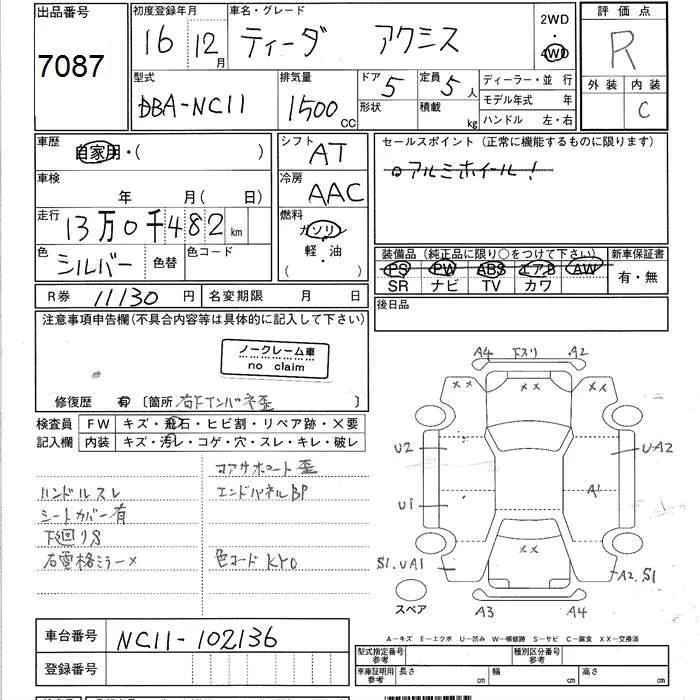 出品番号
7087
初度登録年月
16 12月
車名・グレード
ティーダ アクシス
2WD
・
4WD
評価点
R
外装 内装
C
型式
DBA-NC11
排気量
1500 CC
ドア 形状
5
定員 積載
5人
kg
ディーラー・並 行
モデル年式 年
ハンドル 左・右
車歴
自家用・( )
シフト
AT
セールスポイント(正常に機能するものに限ります)
○アルミホイール!
車検
年 月( 日)
冷房
AAC
走行
13万0千482km
燃料
ガソリン
軽・油
( )
色
シルバー
色替
色コード
装備品(純正品に限り○をつけて下さい)
PS PW ABS エアB AW
SR ナビ TV カワ
新車保証書
有・無
R券 11130円
名変期限 月 日
後日品
注意事項申告欄(不具合内容等は具体的に記入して下さい)
ノークレーム車
no claim
修復歴 有 〔箇所 右Fインパネ歪 〕
検査員記入欄
FW キズ・飛石・ヒビ割・リペア跡・×要
内装 キズ・汚レ・コゲ・穴・スレ・キレ・破レ
コアサポート歪
ハンドルスレ
エンドパネルBP
シートカバー有
下廻りS
右電格ミラー×
色コード KY0
A4 下スリ A2
×× ×× ××
U2
U・A2
U1
A1
××
S1.UA1
A2.S1
スペア
A3 A4
車台番号
NC11-102136
登録番号
A―キズ E―エクボ U―凹み W―補修跡 S―サビ C―腐食 XX―交換済
型式指定番号 参考
種別区分番号 参考
車庫証明用 参考
長さ cm
幅 cm
高さ cm